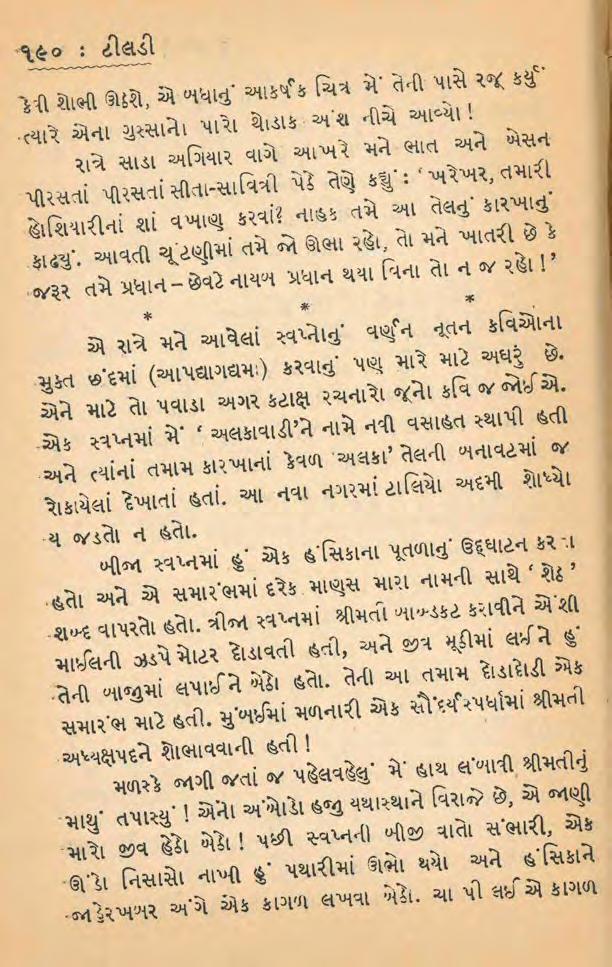 ૧૯૦ : ટીલડી
કેવી શોભી ઊઠશે, એ બધાનું આકર્ષક ચિત્ર મેં તેની પાસે રજૂ કર્યું
ત્યારે એના ગુસ્સાનો પારો થોડાક અંશ નીચે આવ્યો !
રાત્રે સાડા અગિયાર વાગે આખરે મને ભાત અને બેસન
પીરસતાં પીરસતાં સીતા-સાવિત્રી પેઠે તેણે કહ્યું : ‘ ખરેખર, તમારી
હોશિયારીનાં શાં વખાણ કરવાં? નાહક તમે આ તેલનું કારખાનું
કાઢ્યું. આવતી ચૂંટણીમાં તમે જો ઊભા રહો, તો મને ખાતરી છે કે
જરૂર તમે પ્રધાન – છેવટે નાયબ પ્રધાન થયા વિના તો ન જ રહો !’
* * *
એ રાત્રે મને આવેલાં સ્વપ્નોનું વર્ણન નૂતન કવિઓના
મુક્ત છંદમાં (આપદ્યાગદ્યમઃ) કરવાનું પણ મારે માટે અઘરું છે.
એને માટે તો પવાડા અગર કટાક્ષ રચનારો જૂનો કવિ જ જોઈએ.
એક સ્વપ્નમાં મેં ‘ અલકાવાડી’ને નામે નવી વસાહત સ્થાપી હતી
અને ત્યાંનાં તમામ કારખાનાં કેવળ ‘અલકા’ તેલની બનાવટમાં જ
રોકાયેલાં દેખાતાં હતાં. આ નવા નગરમાં ટાલિયો આદમી શોધ્યો
ય જડતો ન હતો.
બીજા સ્વપ્નમાં હું એક હંસિકાના પૂતળાનું ઉદ્‌ઘાટન કરતા
હતો અને એ સમારંભમાં દરેક માણસ મારા નામની સાથે ‘ શેઠ ’
શબ્દ વાપરતો હતો. ત્રીજા સ્વપ્નમાં શ્રીમતી બાબ્ડકટ કરાવીને એંશી
માઈલની ઝડપે મોટર દોડાવતી હતી, અને જીવ મૂઠીમાં લઈને હું
તેની બાજુમાં લપાઈને બેઠો હતો. તેની આ તમામ દોડાદોડી એક
સમારંભ માટે હતી. મુંબઈમાં મળનારી એક સૌંદર્યસ્પર્ધામાં શ્રીમતી
અધ્યક્ષપદને શોભાવવાની હતી !
મળસ્કે જાગી જતાં જ પહેલવહેલું મેં હાથ લંબાવી શ્રીમતીનું
માથું તપાસ્યું ! એનો અંબોડો હજી યથાસ્થાને વિરાજે છે, એ જાણી
મારો જીવ હેઠો બેઠો ! પછી સ્વપ્નની બીજી વાતો સંભારી, એક
ઊંડો નિસાસો નાખી હું પથારીમાં ઊભો થયો અને હંસિકાને
જાહેરખબર અંગે એક કાગળ લખવા બેઠો. ચા પી લઈ એ કાગળ